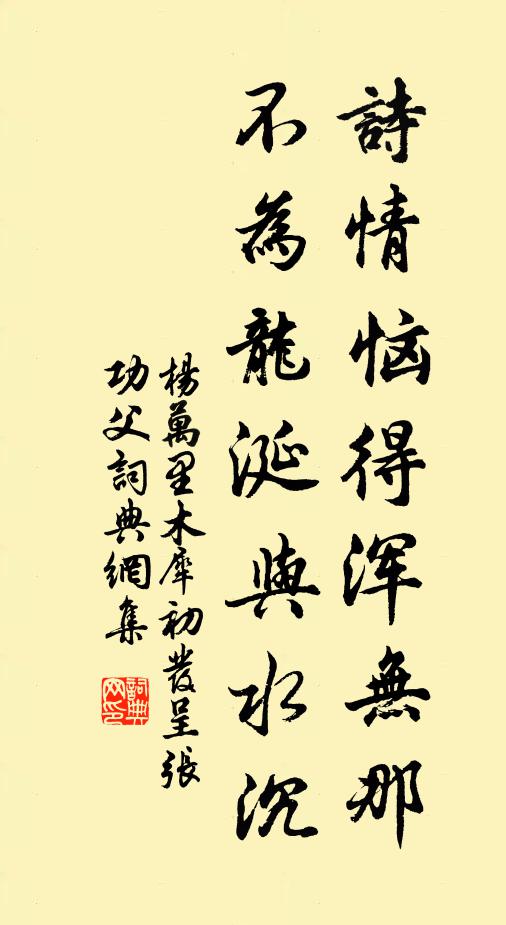 詩情恼得浑無那
不為龍涎與水沉
楊萬里木犀初發呈張
功父詞典網集
詞典网印